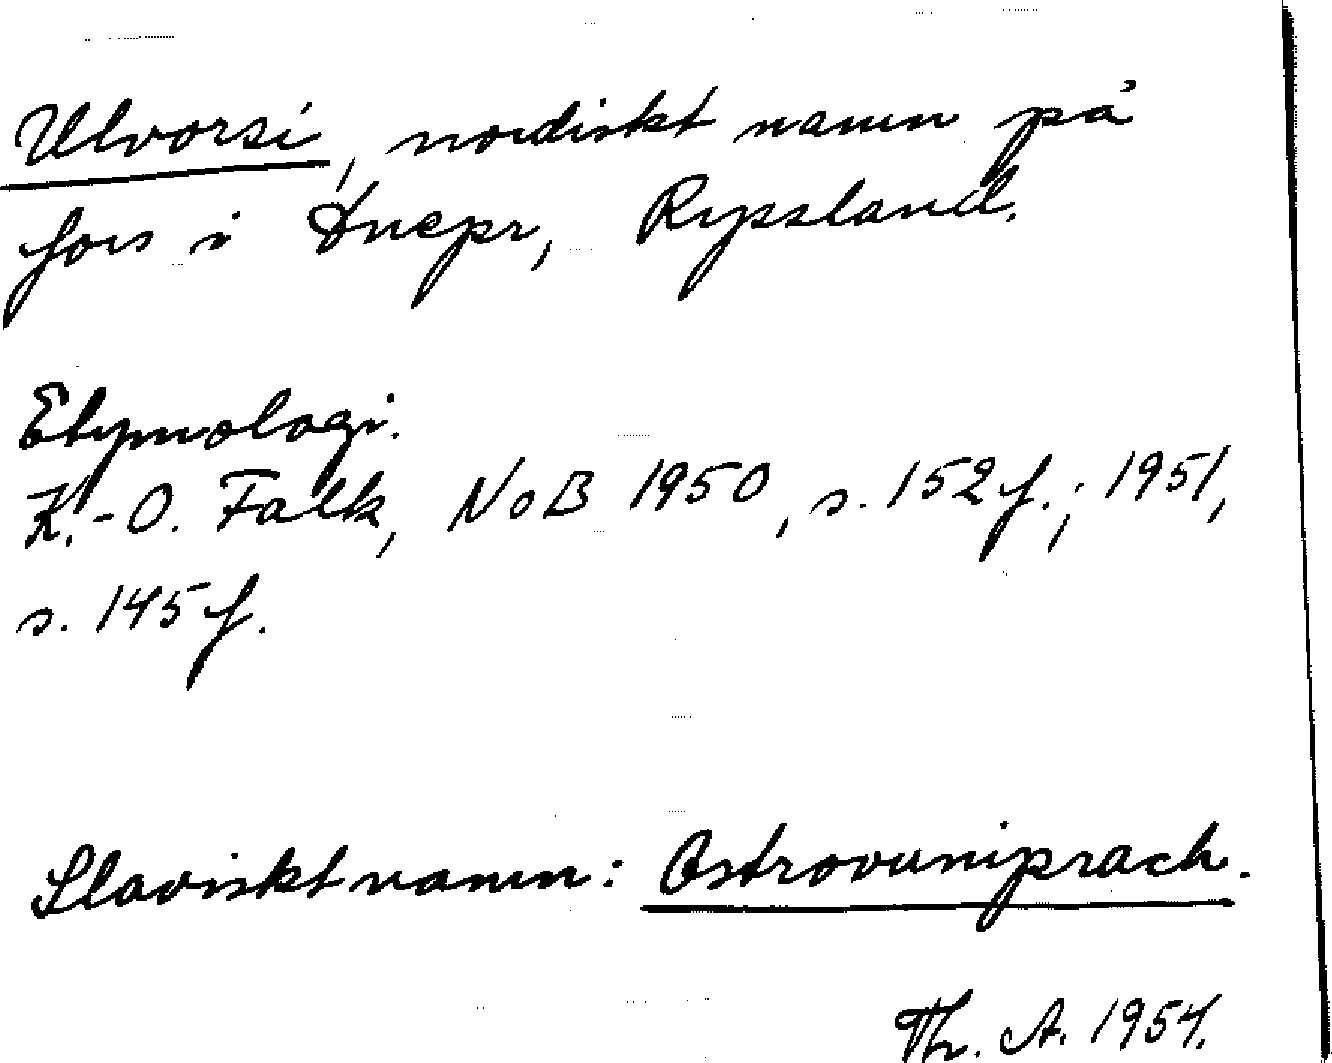 Ulvorsi, nordiskt namn på
fors i Dnepr, Ryssland.
Etymologi.
K.-O. Falk, NoB 1950, s. 152 f.; 1951,
s. 145 f.
Slaviskt namn: Ostrovuniprach.
Th. A. 1954.